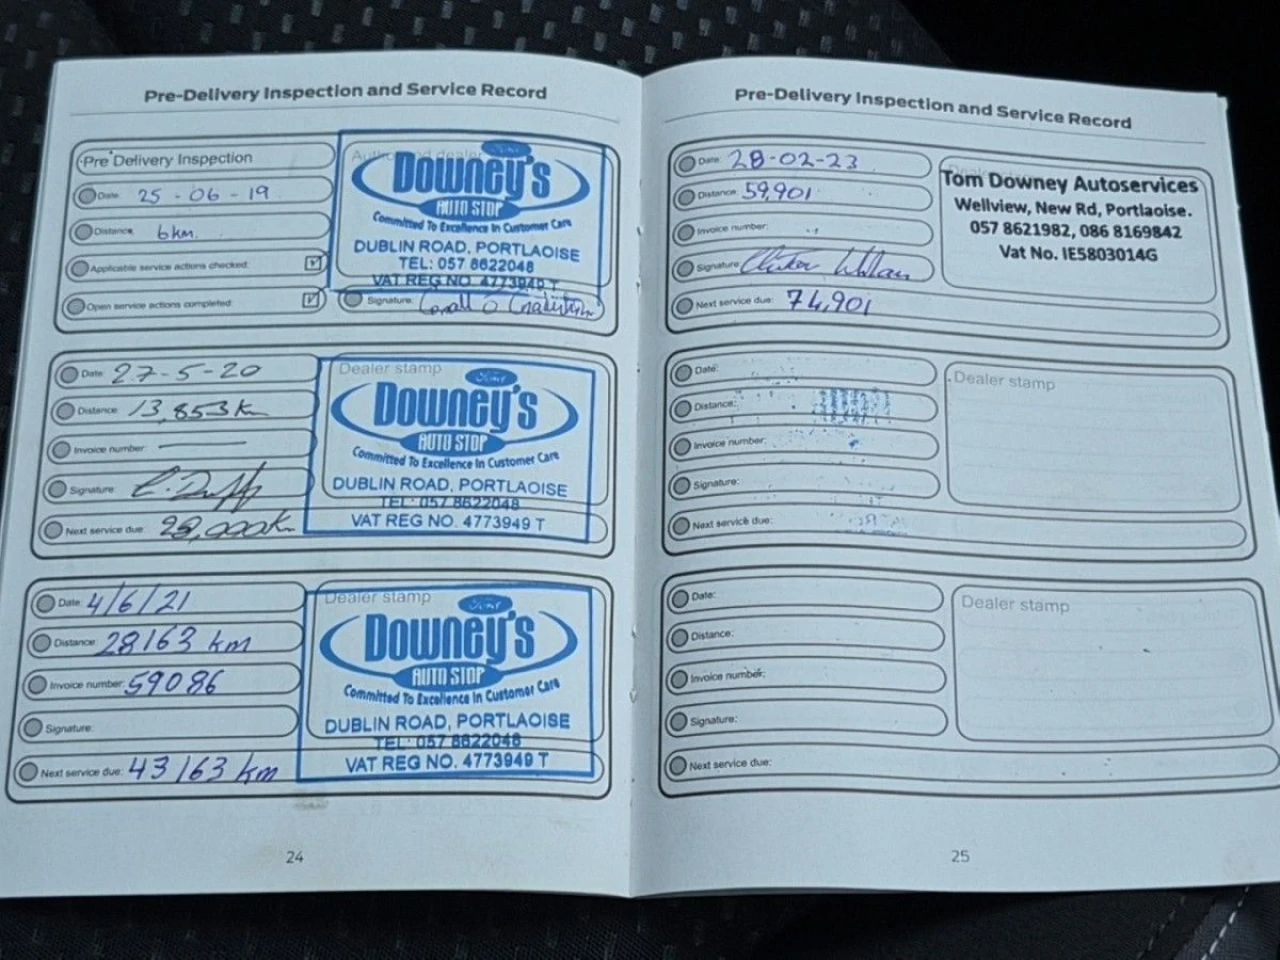 Pre-Delivery Inspection and Service Record
Pre Delivery Inspection
Date: 25-06-19
Distance: 6km.
Applicable service actions checked:
Open service actions completed:
Authorised dealer
Ford
Downey's
AUTO STOP
Committed To Excellence In Customer Care
DUBLIN ROAD, PORTLAOISE
TEL: 057 8622048
VAT REG NO. 4773949 T
Signature:
Date: 27-5-20
Distance: 13,853km
Invoice number:
Signature: C. Duffy
Next service due: 28,000km
Dealer stamp
Ford
Downey's
AUTO STOP
Committed To Excellence In Customer Care
DUBLIN ROAD, PORTLAOISE
TEL: 057 8622048
VAT REG NO. 4773949 T
Date: 4/6/21
Distance: 28163 km
Invoice number: 59086
Signature:
Next service due: 43163 km
Dealer stamp
Ford
Downey's
AUTO STOP
Committed To Excellence In Customer Care
DUBLIN ROAD, PORTLAOISE
TEL: 057 8622048
VAT REG NO. 4773949 T
24
Pre-Delivery Inspection and Service Record
Date: 28-02-23
Distance: 59,901
Invoice number:
Signature:
Next service due: 74,901
Tom Downey Autoservices
Wellview, New Rd, Portlaoise.
057 8621982, 086 8169842
Vat No. IE5803014G
Date:
Distance:
Invoice number:
Signature:
Next service due:
Dealer stamp
Date:
Distance:
Invoice number:
Signature:
Next service due:
Dealer stamp
25